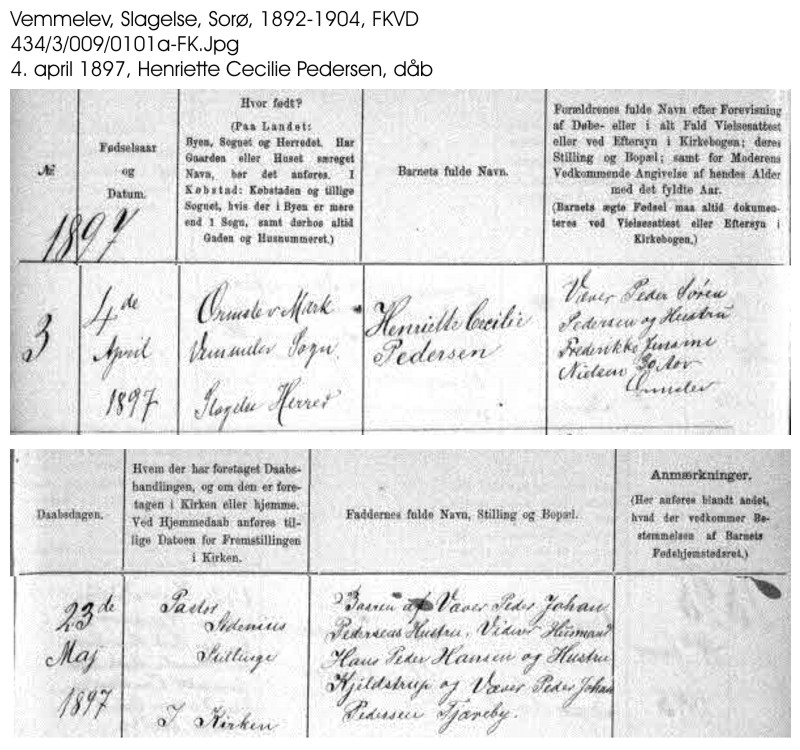 Vemmelev, Slagelse, Sorø, 1892-1904, FKVD
434/3/009/0101a-FK.Jpg
4. april 1897, Henriette Cecilie Pedersen, dåb
№
Fødselsaar
og
Datum.
Hvor født?
(Paa Landet:
Byen, Sognet og Herredet. Har
Gaarden eller Huset særeget
Navn, bør det anføres. I
Købstad: Købstaden og tillige
Sognet, hvis der i Byen er mere
end 1 Sogn, samt derhos altid
Gaden og Husnummeret.)
Barnets fulde Navn.
Forældrenes fulde Navn efter Forevisning
af Døbe- eller i alt Fald Vielsesattest
eller ved Eftersyn i Kirkebogen; deres
Stilling og Bopæl; samt for Moderens
Vedkommende Angivelse af hendes Alder
med det fyldte Aar.
(Barnets ægte Fødsel maa altid dokumen-
teres ved Vielsesattest eller Eftersyn i
Kirkebogen.)
1897
3
4de
April
1897
Ormslev Mark
Sogn
Slagelse Herred
Henriette Cecilie
Pedersen
Væver Peder Søren
Pedersen og Hustru
Frederikke
Nielsen 30 Aar
Ormslev
Daabsdagen.
Hvem der har foretaget Daabs-
handlingen, og om den er fore-
tagen i Kirken eller hjemme.
Ved Hjemmedaab anføres til-
lige Datoen for Fremstillingen
i Kirken.
Faddernes fulde Navn, Stilling og Bopæl.
Anmærkninger.
(Her anføres blandt andet,
hvad der vedkommer Be-
stemmelsen af Barnets
Fødehjemstedsret.)
23de
Maj
1897
Pastor
Sidenius
Stillinge
I Kirken
Baaren af Væver Peder Johan
Pedersens Hustru, Vidner Husmand
Hans Peder Hansen og Hustru
Kjeldstrup og Væver Peder Johan
Pedersen Tjæreby.